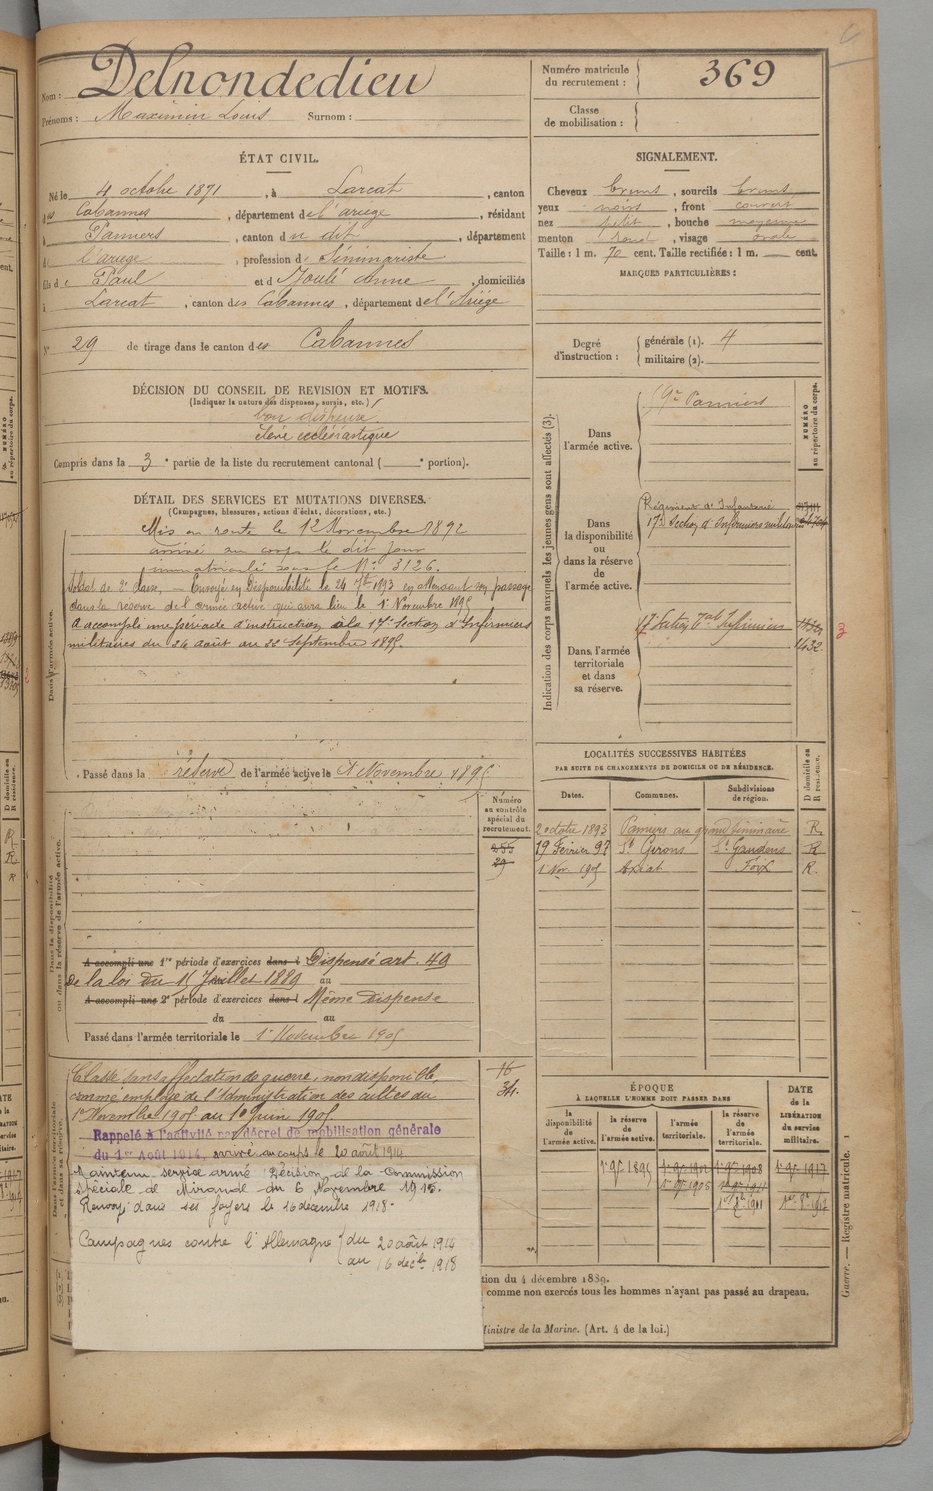 Nom : Delnondedieu
Prénoms : Maximin Louis Surnom :
Numéro matricule du recrutement : 369
Classe de mobilisation :
ÉTAT CIVIL.
Né le 4 octobre 1871, à Larcat, canton
des Cabannes, département de l'ariège, résidant
à Pamiers, canton du dit, département
de l'ariege, profession de Séminariste
fils de Paul et d Joulé Anne, domiciliés
à Larcat, canton des Cabannes, département de l'Ariège
N° 29 de tirage dans le canton des Cabannes
SIGNALEMENT.
Cheveux bruns, sourcils bruns
yeux noirs, front couvert
nez petit, bouche moyenne
menton rond, visage ovale
Taille : 1 m. 70 cent. Taille rectifiée : 1 m. cent.
MARQUES PARTICULIÈRES :
Degré d'instruction : générale (1). 4
militaire (2).
DÉCISION DU CONSEIL DE REVISION ET MOTIFS.
(Indiquer la nature des dispenses, sursis, etc.)
bon dispensé
élève ecclésiastique
Compris dans la 3e partie de la liste du recrutement cantonal ( e portion).
DÉTAIL DES SERVICES ET MUTATIONS DIVERSES.
(Campagnes, blessures, actions d'éclat, décorations, etc.)
Dans l'armée active.
Mis en route le 12 Novembre 1892
arrivé au corps le dit jour
immatriculé sous le N° 3126.
Soldat de 2e classe, — Envoyé en Disponibilité le 24 7bre 1893 en attendant son passage
dans la réserve de l'armée active qui aura lieu le 1er Novembre 1895
A accompli une période d'instruction à la 17e Section d'Infirmiers
militaires du 26 août au 22 Septembre 1895.
Passé dans la réserve de l'armée active le 1er Novembre 1895
Indication des corps auxquels les jeunes gens sont affectés (3).
NUMÉRO au répertoire du corps.
Dans l'armée active.
Pamiers
Dans la disponibilité ou dans la réserve de l'armée active.
Régiment d'Infanterie
17e Section d'Infirmiers militaires
Dans l'armée territoriale et dans sa réserve.
17e Section Infirmiers
1432.
3
LOCALITÉS SUCCESSIVES HABITÉES
PAR SUITE DE CHANGEMENTS DE DOMICILE OU DE RÉSIDENCE.
Dates. Communes. Subdivisions de région. D domicile ou R résidence.
2 octobre 1893 Pamiers au grand séminaire R
19 Février 97 St Girons St Gaudens R
1 Nov. 1905 Axiat Foix R.
Numéro au contrôle spécial du recrutement.
255
29
Dans la disponibilité ou dans la réserve de l'armée active.
A accompli une 1re période d'exercices dans l Dispensé art. 49
De la loi du 15 Juillet 1889 au
A accompli une 2e période d'exercices dans l Même dispense
du au
Passé dans l'armée territoriale le 1er Novembre 1905
Classé sans affectation de guerre, non disponible,
comme employé de l'Administration des cultes du
1er Novembre 1905 au 1er Juin 1905
16
34.
Rappelé à l'activité par décret de mobilisation générale
du 1er Août 1914, arrivé au corps le 20 août 1914
Maintenu service armé Décision de la Commission
spéciale de Mirande du 6 Novembre 1915.
Renvoyé dans ses foyers le 16 décembre 1918.
Campagnes contre l'Allemagne du 20 août 1914
au 16 décbre 1918
ÉPOQUE
À LAQUELLE L'HOMME DOIT PASSER DANS
DATE de la LIBÉRATION du service militaire.
la disponibilité de l'armée active. la réserve de l'armée active. l'armée territoriale. la réserve de l'armée territoriale.
1er 9bre 1895 1er 9bre 1908 1er 9bre 1917
1er 9bre 1905 1er 9bre 1911
tion du 4 décembre 1889.
comme non exercés tous les hommes n'ayant pas passé au drapeau.
Ministre de la Marine. (Art. 4 de la loi.)
Guerre. — Registre matricule. 1